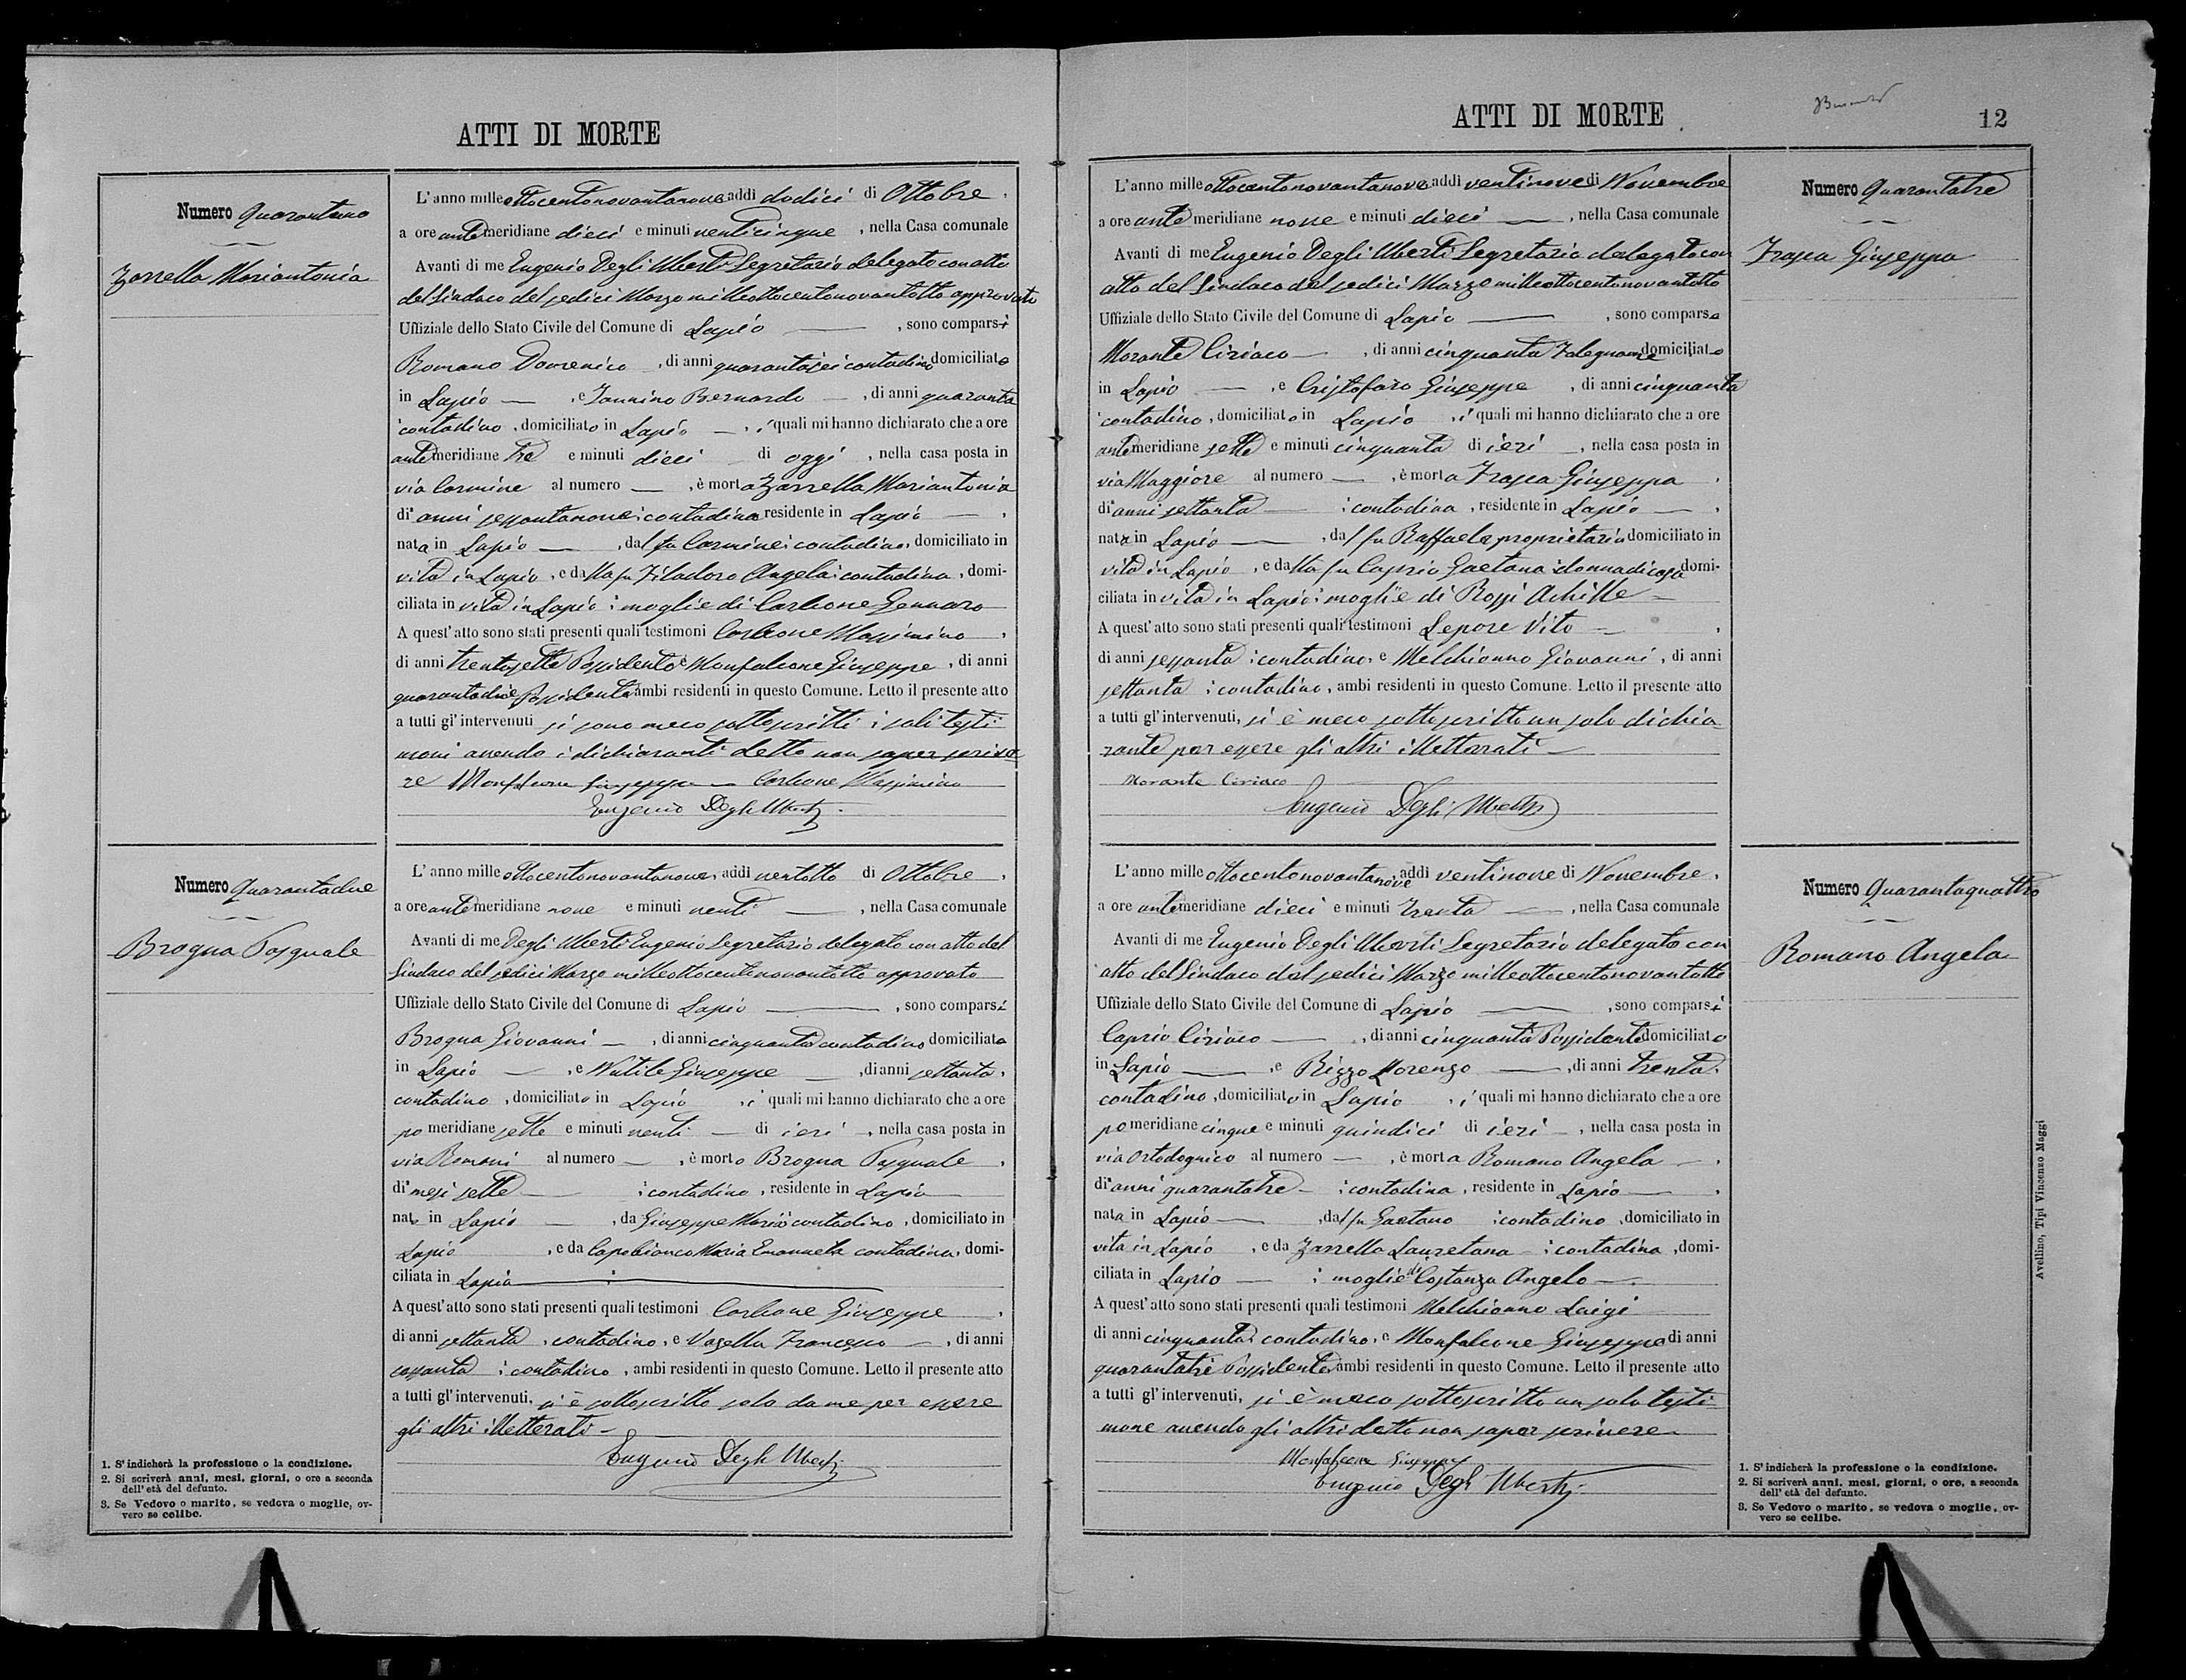 ATTI DI MORTE
Numero Quarantuno
Zarrella Mariantonia
L'anno mille ottocentonovantanove, addì dodici di Ottobre,
a ore ante meridiane dieci e minuti venticinque, nella Casa comunale
Avanti di me Eugenio Degli Uberti Segretario delegato con atto
del Sindaco del sedici Marzo milleottocentonovantotto approvato
Uffiziale dello Stato Civile del Comune di Lapio, sono comparsi
Romano Domenico, di anni quarantasei contadino domiciliato
in Lapio, e Iannino Bernardo, di anni quaranta
contadino, domiciliato in Lapio, i quali mi hanno dichiarato che a ore
ante meridiane tre e minuti dieci di oggi, nella casa posta in
via Carmine al numero —, è morta Zarrella Mariantonia
di anni sessantanove contadina residente in Lapio,
nata in Lapio, dal fu Carmine contadino, domiciliato in
vita in Lapio, e dalla fu Filadoro Angela contadina, domi-
ciliata in vita in Lapio moglie di Carbone Gennaro
A quest'atto sono stati presenti quali testimoni Carbone Massimino,
di anni trentasette Possidente e Monfalcone Giuseppe, di anni
quarantadue Possidente ambi residenti in questo Comune. Letto il presente atto
a tutti gl'intervenuti si sono meco sottoscritti i soli testi-
moni avendo i dichiaranti detto non saper scrive-
re Monfalcone Giuseppe — Carbone Massimino
Eugenio Degli Uberti
Numero Quarantadue
Brogna Pasquale
L'anno mille ottocentonovantanove, addì ventotto di Ottobre,
a ore ante meridiane nove e minuti venti, nella Casa comunale
Avanti di me Degli Uberti Eugenio Segretario delegato con atto del
Sindaco del sedici Marzo milleottocentonovantotto approvato
Uffiziale dello Stato Civile del Comune di Lapio, sono comparsi
Brogna Giovanni, di anni cinquanta contadino domiciliato
in Lapio, e Nutile Giuseppe, di anni settanta,
contadino, domiciliato in Lapio, i quali mi hanno dichiarato che a ore
po meridiane sette e minuti venti di ieri, nella casa posta in
via Romani al numero —, è morto Brogna Pasquale,
di mesi sette contadino, residente in Lapio
nato in Lapio, da Giuseppe Maria contadino, domiciliato in
Lapio, e da Capobianco Maria Emanuela contadina, domi-
ciliata in Lapio
A quest'atto sono stati presenti quali testimoni Carbone Giuseppe,
di anni settanta, contadino, e Vasella Francesco, di anni
sessanta contadino, ambi residenti in questo Comune. Letto il presente atto
a tutti gl'intervenuti, si è sottoscritto solo da me per essere
gli altri illetterati
Eugenio Degli Uberti
1. S'indicherà la professione o la condizione.
2. Si scriverà anni, mesi, giorni, o ore a seconda
dell'età del defunto.
3. Se Vedovo o marito, se vedova o moglie, ov-
vero se celibe.
ATTI DI MORTE
12
Numero Quarantatre
Frasca Giuseppa
L'anno mille ottocentonovantanove addì ventinove di Novembre
a ore ante meridiane nove e minuti dieci, nella Casa comunale
Avanti di me Eugenio Degli Uberti Segretario delegato con
atto del Sindaco del sedici Marzo milleottocentonovantotto
Uffiziale dello Stato Civile del Comune di Lapio, sono comparsa
Morante Ciriaco, di anni cinquanta Falegname domiciliato
in Lapio, e Cristofaro Giuseppe, di anni cinquanta
contadino, domiciliato in Lapio, i quali mi hanno dichiarato che a ore
ante meridiane sette e minuti cinquanta di ieri, nella casa posta in
via Maggiore al numero —, è morta Frasca Giuseppa,
di anni settanta contadina, residente in Lapio,
nata in Lapio, dal fu Raffaele proprietario domiciliato in
vita in Lapio, e dalla fu Caprio Gaetana donna di casa domi-
ciliata in vita in Lapio moglie di Rossi Achille
A quest'atto sono stati presenti quali testimoni Lepore Vito,
di anni sessanta contadino, e Melchionno Giovanni, di anni
settanta contadino, ambi residenti in questo Comune. Letto il presente atto
a tutti gl'intervenuti, si è meco sottoscritto un solo dichia-
rante per essere gli altri illetterati
Morante Ciriaco
Eugenio Degli Uberti
Numero Quarantaquattro
Romano Angela
L'anno mille ottocentonovantanove addì ventinove di Novembre,
a ore ante meridiane dieci e minuti trenta, nella Casa comunale
Avanti di me Eugenio Degli Uberti Segretario delegato con
atto del Sindaco del sedici Marzo milleottocentonovantotto
Uffiziale dello Stato Civile del Comune di Lapio, sono comparsi
Caprio Ciriaco, di anni cinquanta Possidente domiciliato
in Lapio, e Rizzo Lorenzo, di anni trenta,
contadino, domiciliato in Lapio, i quali mi hanno dichiarato che a ore
po meridiane cinque e minuti quindici di ieri, nella casa posta in
via Ortodognico al numero —, è morta Romano Angela,
di anni quarantatre contadina, residente in Lapio,
nata in Lapio, dal fu Gaetano contadino, domiciliato in
vita in Lapio, e da Zarrella Lauretana contadina, domi-
ciliata in Lapio moglie di Costanza Angelo
A quest'atto sono stati presenti quali testimoni Melchionno Luigi
di anni cinquanta contadino, e Monfalcone Giuseppe di anni
quarantatre Possidente ambi residenti in questo Comune. Letto il presente atto
a tutti gl'intervenuti, si è meco sottoscritto un solo testi-
mone avendo gli altri detto non saper scrivere
Monfalcone Giuseppe
Eugenio Degli Uberti
1. S'indicherà la professione o la condizione.
2. Si scriverà anni, mesi, giorni, o ore, a seconda
dell'età del defunto.
3. Se Vedovo o marito, se vedova o moglie, ov-
vero se celibe.
Avellino, Tipi Vincenzo Maggi